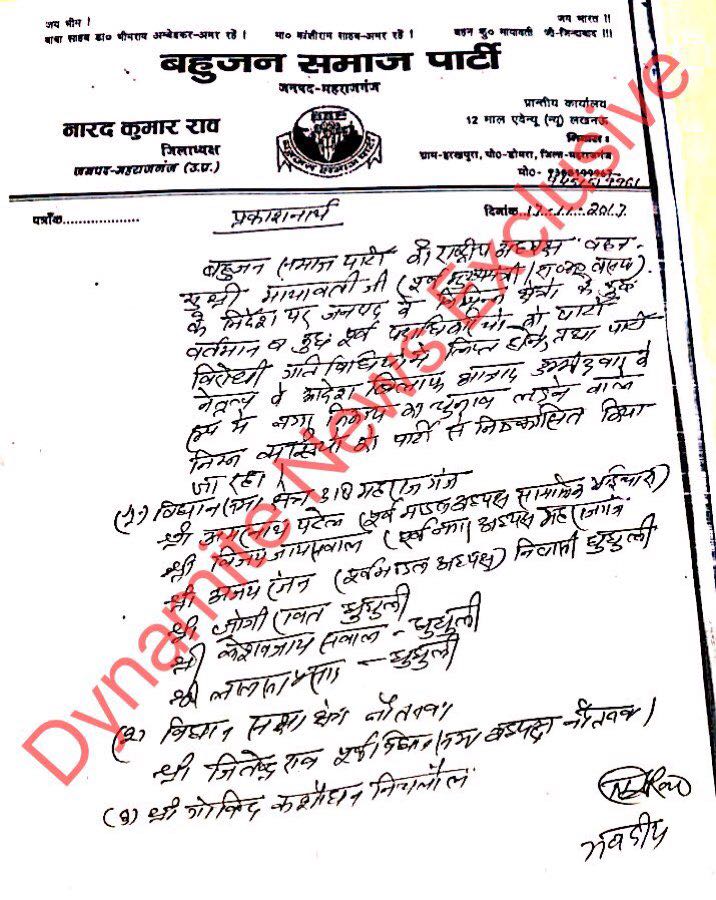 जय भीम !
जय भारत !!
बाबा साहब डा० भीमराव अम्बेडकर-अमर रहें !
मा० कांशीराम साहब-अमर रहें !
बहन कु० मायावती जी-जिन्दाबाद !!!
बहुजन समाज पार्टी
जनपद-महराजगंज
नारद कुमार राव
जिलाध्यक्ष
जनपद-महराजगंज (उ.प्र.)
BSP
बहुजन समाज पार्टी
प्रान्तीय कार्यालय
12 माल एवेन्यू (न्यू) लखनऊ
निवास :
ग्राम-हरखपुरा, पो०-डोमरा, जिला-महराजगंज
मो०-
पत्रांक
दिनांक 17-11-2017
प्रकाशनार्थ
बहुजन समाज पार्टी की राष्ट्रीय अध्यक्ष बहन
सुश्री मायावती जी (पूर्व मुख्यमंत्री
के निर्देश पर जनपद के विभिन्न क्षेत्रों के कुछ
वर्तमान व कुछ पूर्व पदाधिकारियों को पार्टी
विरोधी गतिविधियों में लिप्त होने, तथा पार्टी
नेतृत्व के आदेश खिलाफ उम्मीदवार के
रूप में नगर निकाय का चुनाव लड़ने वाले
निम्न को पार्टी से निष्कासित किया
जा रहा।
(1) विधान सभा क्षेत्र 318 महराजगंज
श्री अमरनाथ पटेल (पूर्व मण्डल अध्यक्ष भाईचारा)
श्री विजय जायसवाल (पूर्व अध्यक्ष
श्री अजय जैन (पूर्व मण्डल अध्यक्ष) निवासी घुघुली
श्री जोगी रावत घुघुली
श्री केशव जायसवाल - घुघुली
श्री - घुघुली
(2) विधान सभा क्षेत्र नौतनवा
श्री जितेन्द्र राव पूर्व विधान सभा अध्यक्ष नौतनवा।
(3) श्री गोविंद कसौधन निचलौल
Dynamite News Exclusive